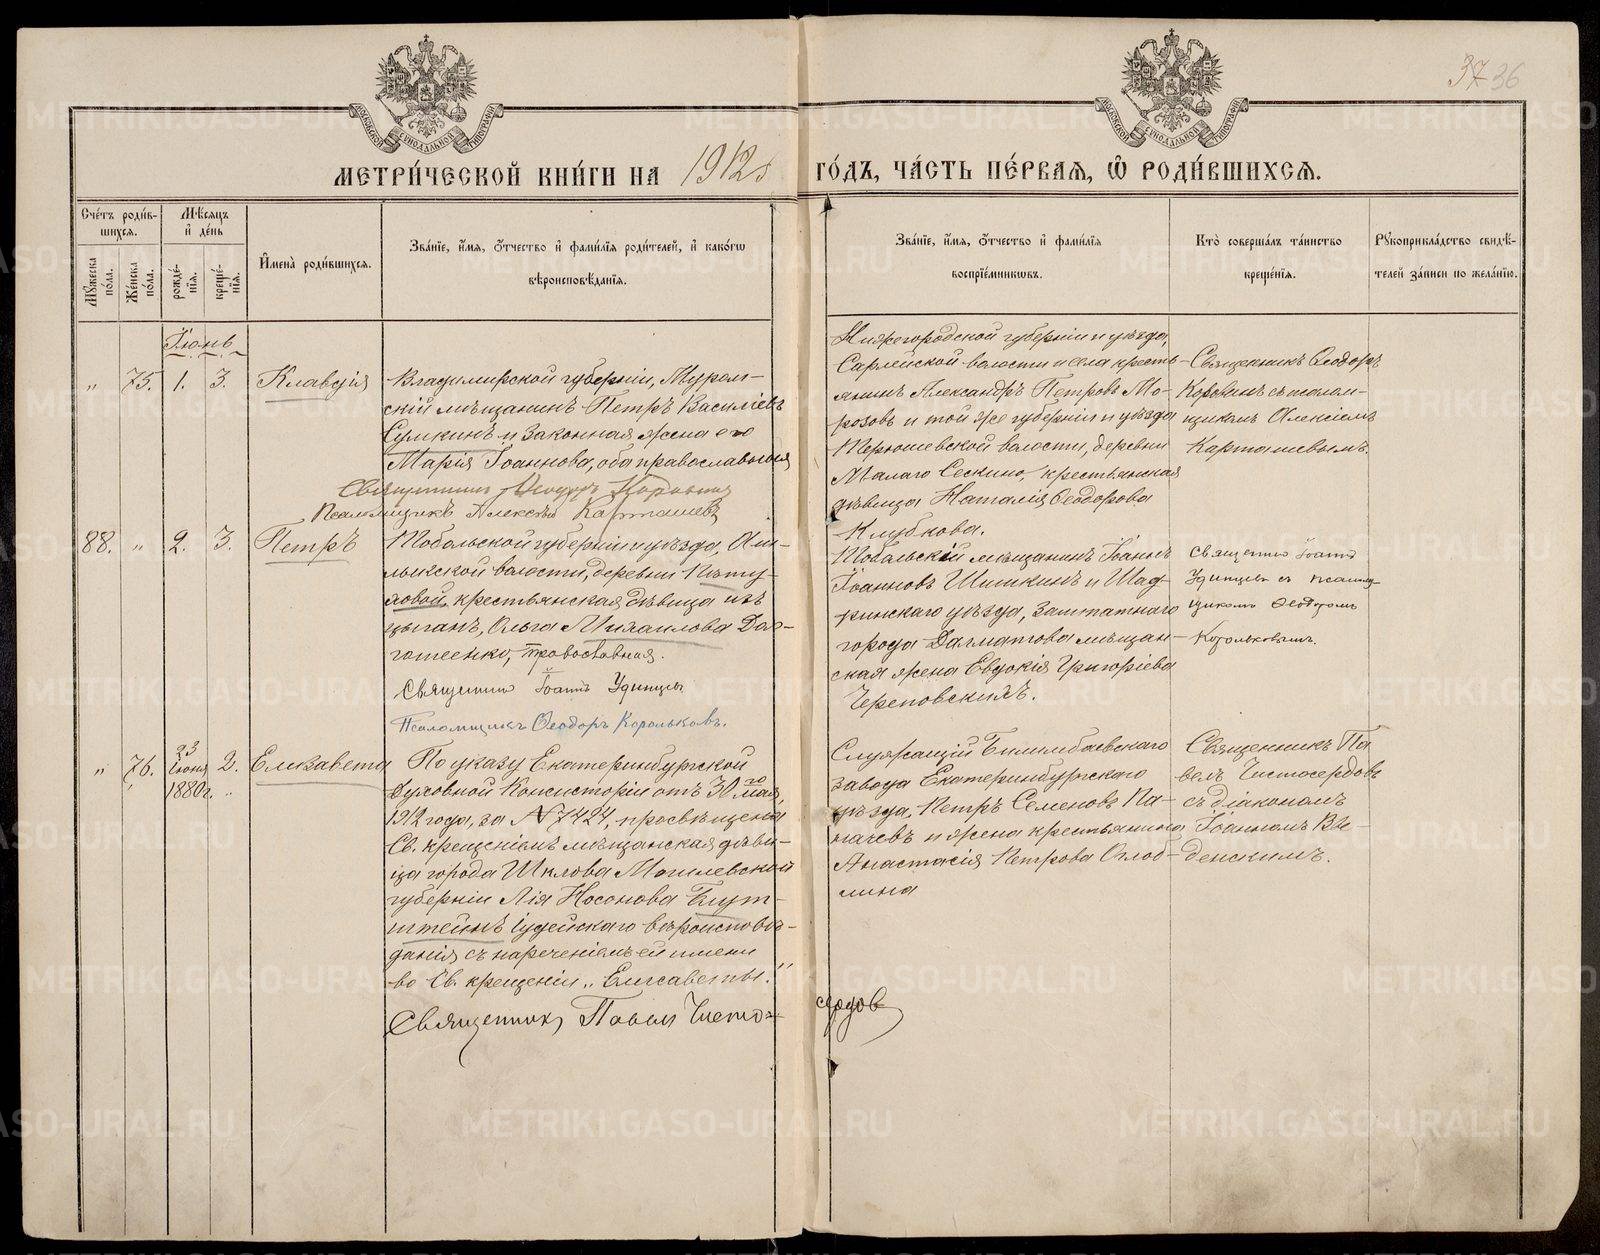 37 36
МЕТРИ́ЧЕСКОЙ КНИ́ГИ НА 1912 ГО́ДЪ, ЧА́СТЬ ПЕ́РВАЯ, Ѡ РОДИ́ВШИХСЯ.
Сче́тъ роди́вшихся.
Мѣ́сяцъ и де́нь
Мꙋ́жеска по́ла.
Же́нска по́ла.
рожде́нїя.
креще́нїя.
Имена̀ роди́вшихся.
Зва́нїе, и́мя, о́тчество и фами́лїя роди́телей, и како́гѡ
вѣроисповѣ́данїя.
Зва́нїе, и́мя, о́тчество и фами́лїя
воспрїе́мниковъ.
Кто̀ соверша́лъ та́инство
креще́нїя.
Рꙋкоприкла́дство свидѣ́-
телей за́писи по жела́нїю.
Іюнь
„ 75. 1. 3. Клавдія
Владимирской губерніи, Муром-
скій мѣщанинъ Петръ Василіевъ
Сушкинъ и законная жена его
Марія Іоаннова, оба православныя
Священникъ Ѳеодоръ Коровинъ
Псаломщикъ Алексѣй Карташевъ
Нижегородской губерніи и уѣзда,
Сарлейской волости и села кресть-
янинъ Александръ Петровъ Мо-
розовъ и той же губерніи и уѣзда
волости, деревни
Малаго Сескино, крестьянская
дѣвица Наталія Ѳеодорова
Клубкова.
Священникъ Ѳеодоръ
Коровинъ съ псалом-
щикомъ Алексіемъ
Карташевымъ.
88. „ 2. 3. Петръ
Тобольской губерніи и уѣзда,
волости, деревни
крестьянская дѣвица изъ
цыганъ, Ольга Михаилова
православная.
Священникъ Іоаннъ Удинцевъ
Псаломщикъ Ѳеодоръ Корольковъ.
Тобольскій мѣщанинъ Іоаннъ
Іоанновъ Шишкинъ и Шад-
ринскаго уѣзда, заштатнаго
города Далматова мѣщан-
ская жена Евдокія Григоріева
Священникъ Іоаннъ
Удинцевъ съ псалом-
щикомъ Ѳеодоромъ
Корольковымъ.
„ 76. 23 Іюня 1880 г. 2. Елизавета
По указу Екатеринбургской
Духовной Консисторіи отъ 30го мая,
1912 года, за № 7424, просвѣщена
Св. крещеніемъ мѣщанская дѣви-
ца города Шклова Могилевской
губерніи Лія Носонова Блут-
штейнъ іудейскаго вѣроисповѣ-
данія съ нареченіемъ ей имени
во Св. крещеніи „Елисаветы."
Священникъ Павелъ Чисто-
сердовъ
Служащій Билимбаевскаго
завода Екатеринбургскаго
уѣзда, Петръ Семеновъ Па-
начевъ и жена крестьянина
Анастасія Петрова Оглоб-
лина
Священникъ Па
велъ Чистосердовъ
съ діакономъ
Іоанномъ Вве-
денскимъ.